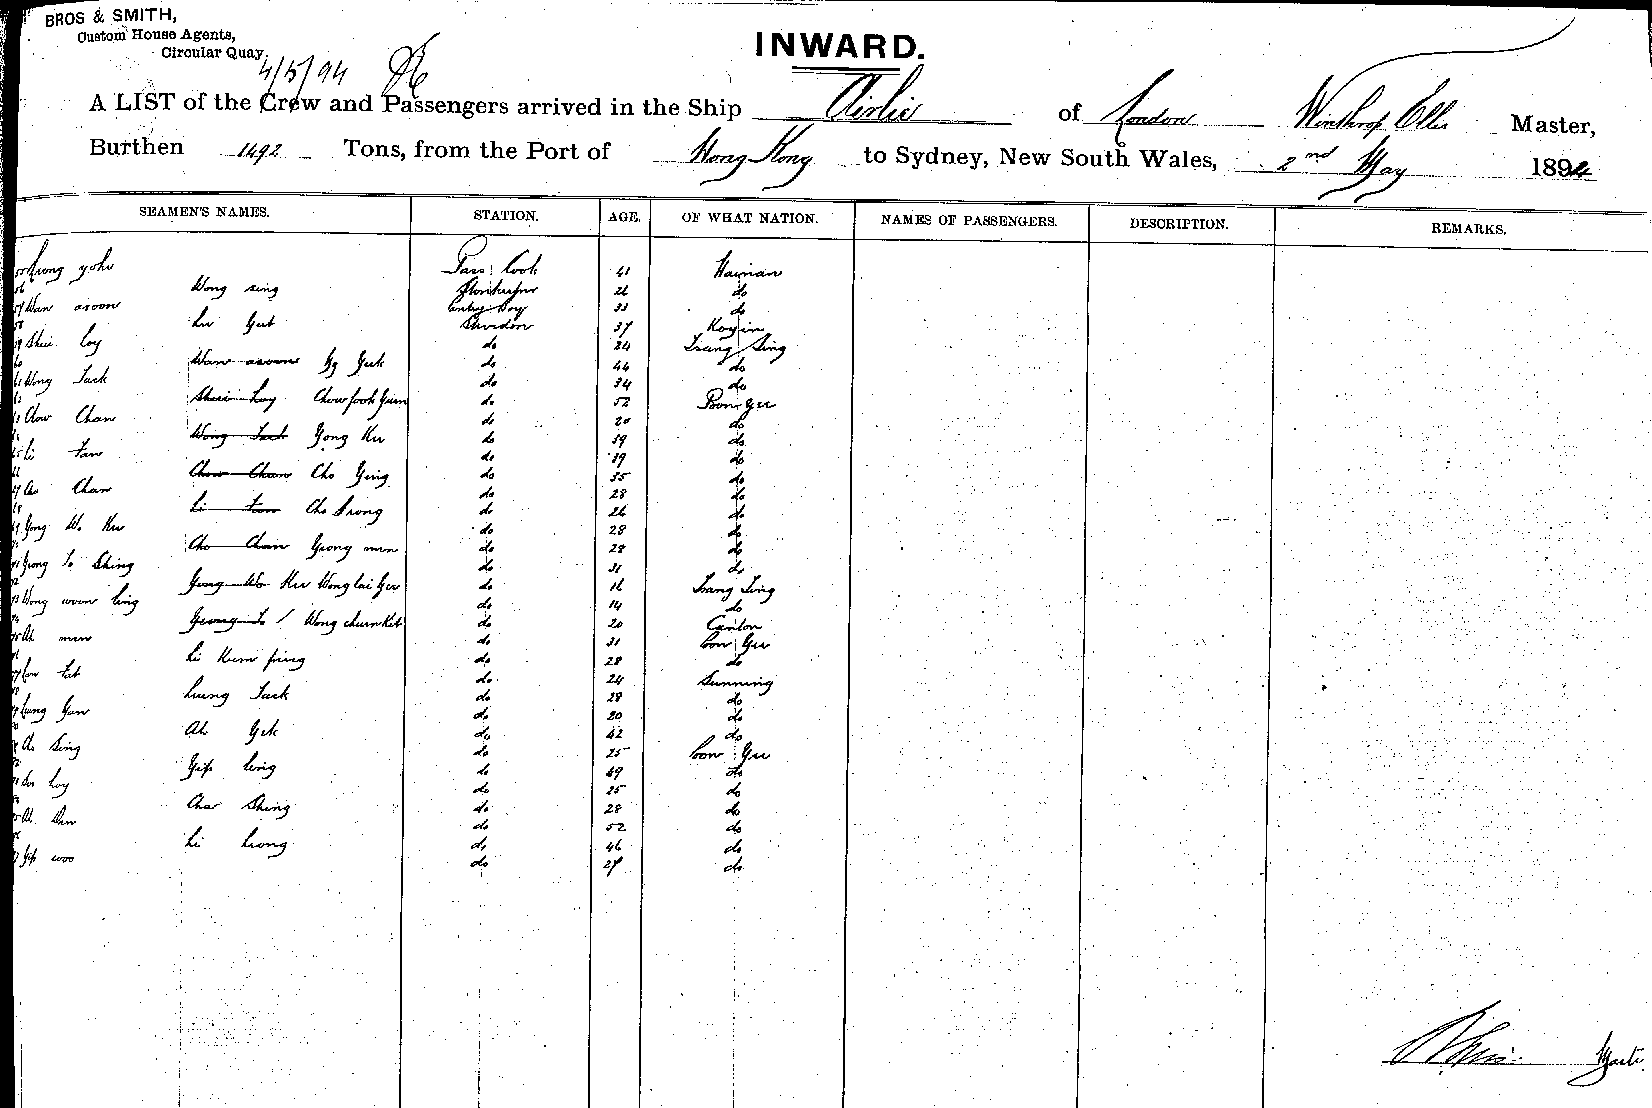 BROS & SMITH,
Custom House Agents,
Circular Quay.
4/5/94
INWARD.
A LIST of the Crew and Passengers arrived in the Ship Airlie of London Winthrop Ellis Master,
Burthen 1492 Tons, from the Port of Hong Kong to Sydney, New South Wales, 2nd May 1894
SEAMEN'S NAMES. STATION. AGE. OF WHAT NATION. NAMES OF PASSENGERS. DESCRIPTION. REMARKS.
Pass. Cook 41 Hainan
56 Wong sing Storekeeper 26 do
57 Wan asoon Boy 33 do
58 37
59 Shui Loy do 24 Tsang Sing
60 Wan asoon Ng Yuk do 44 do
61 Wong Jack do 34 do
62 Shui Loy Chow fook Yuen do 52
63 Chow Chan do 20 do
64 Wong Jack Yong Ku do 39 do
65 Li Fan do 39 do
66 Chow Chan Cho Ying do 35 do
67 Cho Chan do 28 do
68 Li Fan Cho do 26 do
69 Yong Wo Ku do 28 do
70 Cho Chan Yeong men do 28 do
71 Yeong To Shing do 31 do
72 Yong Wo Ku Wong lai Yew do 16 Tsang Sing
73 Wong woon ling do 14 do
74 Yeong To Wong chum Kit do 20 Canton
75 Ah man do 31
76 Li Kum ping do 28 do
77 Tat do 24 Sunning
78 Leung Jack do 28 do
79 Leung Yun do 20 do
80 Ah Yek do 42 do
81 Ah Sing do 25
82 Yip ling do 49 do
83 Loy do 25 do
84 Char Shing do 28 do
85 Ah do 52 do
86 Li Leong do 46 do
87 Yip woo do 27 do
Master